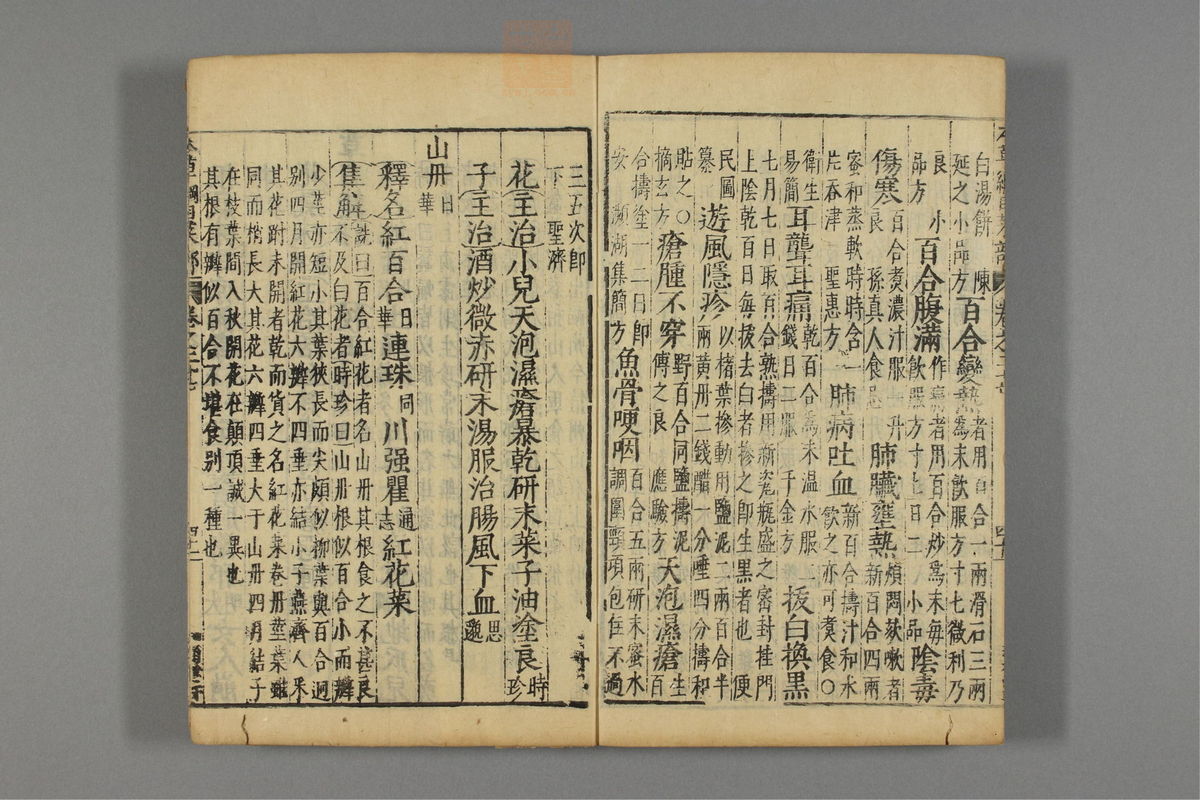 白湯餅 陳延之小品方 百合變熱 者用百合一兩滑石三兩爲末飲服方寸匕微利乃
良 小品方 百合腹滿 作痛者用百合炒爲末每飲服方寸匕日二 小品 陰毒
傷寒 百合煮濃汁服一升良 孫真人食忌 肺臟壅熱 煩悶欬嗽者新百合四兩
蜜和蒸軟時時含一片吞津 聖惠方 肺病吐血 新百合擣汁和水飲之亦可煮食○
衛生易簡 耳聾耳痛 乾百合爲末温水服二錢日二服 千金方 拔白換黑
七月七日取百合熟擣用新瓷瓶盛之密封挂門上陰乾百日每拔去白者摻之即生黑者也 便
民圖纂 遊風隱疹 以楮葉摻動用鹽泥二兩百合半兩黄丹二錢醋一分唾四分擣和
貼之○摘玄方 瘡腫不穿 野百合同鹽擣泥傅之良 應驗方 天泡濕瘡 生百
合擣塗一二日即安 瀕湖集簡方 魚骨哽咽 百合五兩研末蜜水調圍頸項包住不過
三五次即下 聖濟
花主治小兒天泡濕瘡暴乾研末菜子油塗良時珍
子主治酒炒微赤研末湯服治腸風下血思邈
山丹日華
釋名紅百合日華連珠同川强瞿通志紅花菜
集解詵曰百合紅花者名山丹其根食之不甚良不及白花者時珍曰山丹根似百合小而瓣
少莖亦短小其葉狹長而尖頗似柳葉與百合迥别四月開紅花六瓣不四垂亦結小子燕齊人采
其花跗未開者乾而貨之名紅花菜卷丹莖葉雖同而稍長大其花六瓣四垂大于山丹四月結子
在枝葉間入秋開花在顛頂誠一異也其根有瓣似百合不堪食别一種也